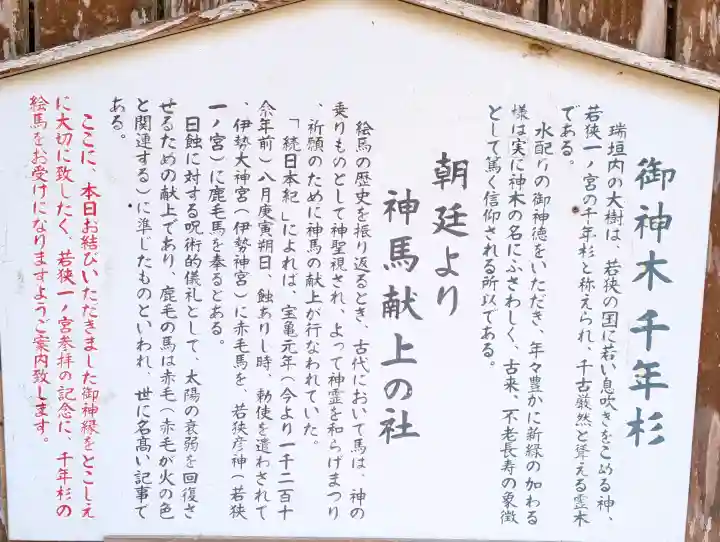 御神木千年杉
瑞垣内の大樹は、若狭の国に若い息吹きをこめる神、
若狭一ノ宮の千年杉と称えられ、千古厳然と聳える霊木
である。
水配りの御神徳をいただき、年々豊かに新緑の加わる
様は実に神木の名にふさわしく、古来、不老長寿の象徴
として篤く信仰される所以である。
朝廷より
神馬献上の社
絵馬の歴史を振り返るとき、古代において馬は、神の
乗りものとして神聖視され、よって神霊を和らげまつり
、祈願のために神馬の献上が行なわれていた。
「続日本紀」によれば、宝亀元年(今より一千二百十
余年前)八月庚寅朔日、蝕ありし時、勅使を遣わされて
、伊勢大神宮(伊勢神宮)に赤毛馬を、若狭彦神(若狭
一ノ宮)に鹿毛馬を奉るとある。
日蝕に対する呪術的儀礼として、太陽の衰弱を回復さ
せるための献上であり、鹿毛の馬は赤毛(赤毛が火の色
と関連する)に準じたものといわれ、世に名高い記事で
ある。
ここに、本日お結びいただきました御神縁をとこしえ
に大切に致したく、若狭一ノ宮参拝の記念に、千年杉の
絵馬をお受けになりますようご案内致します。